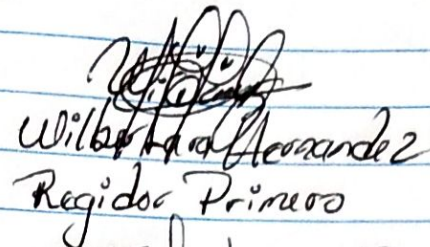 Wilber Lara Hernandez
Regidor Primero